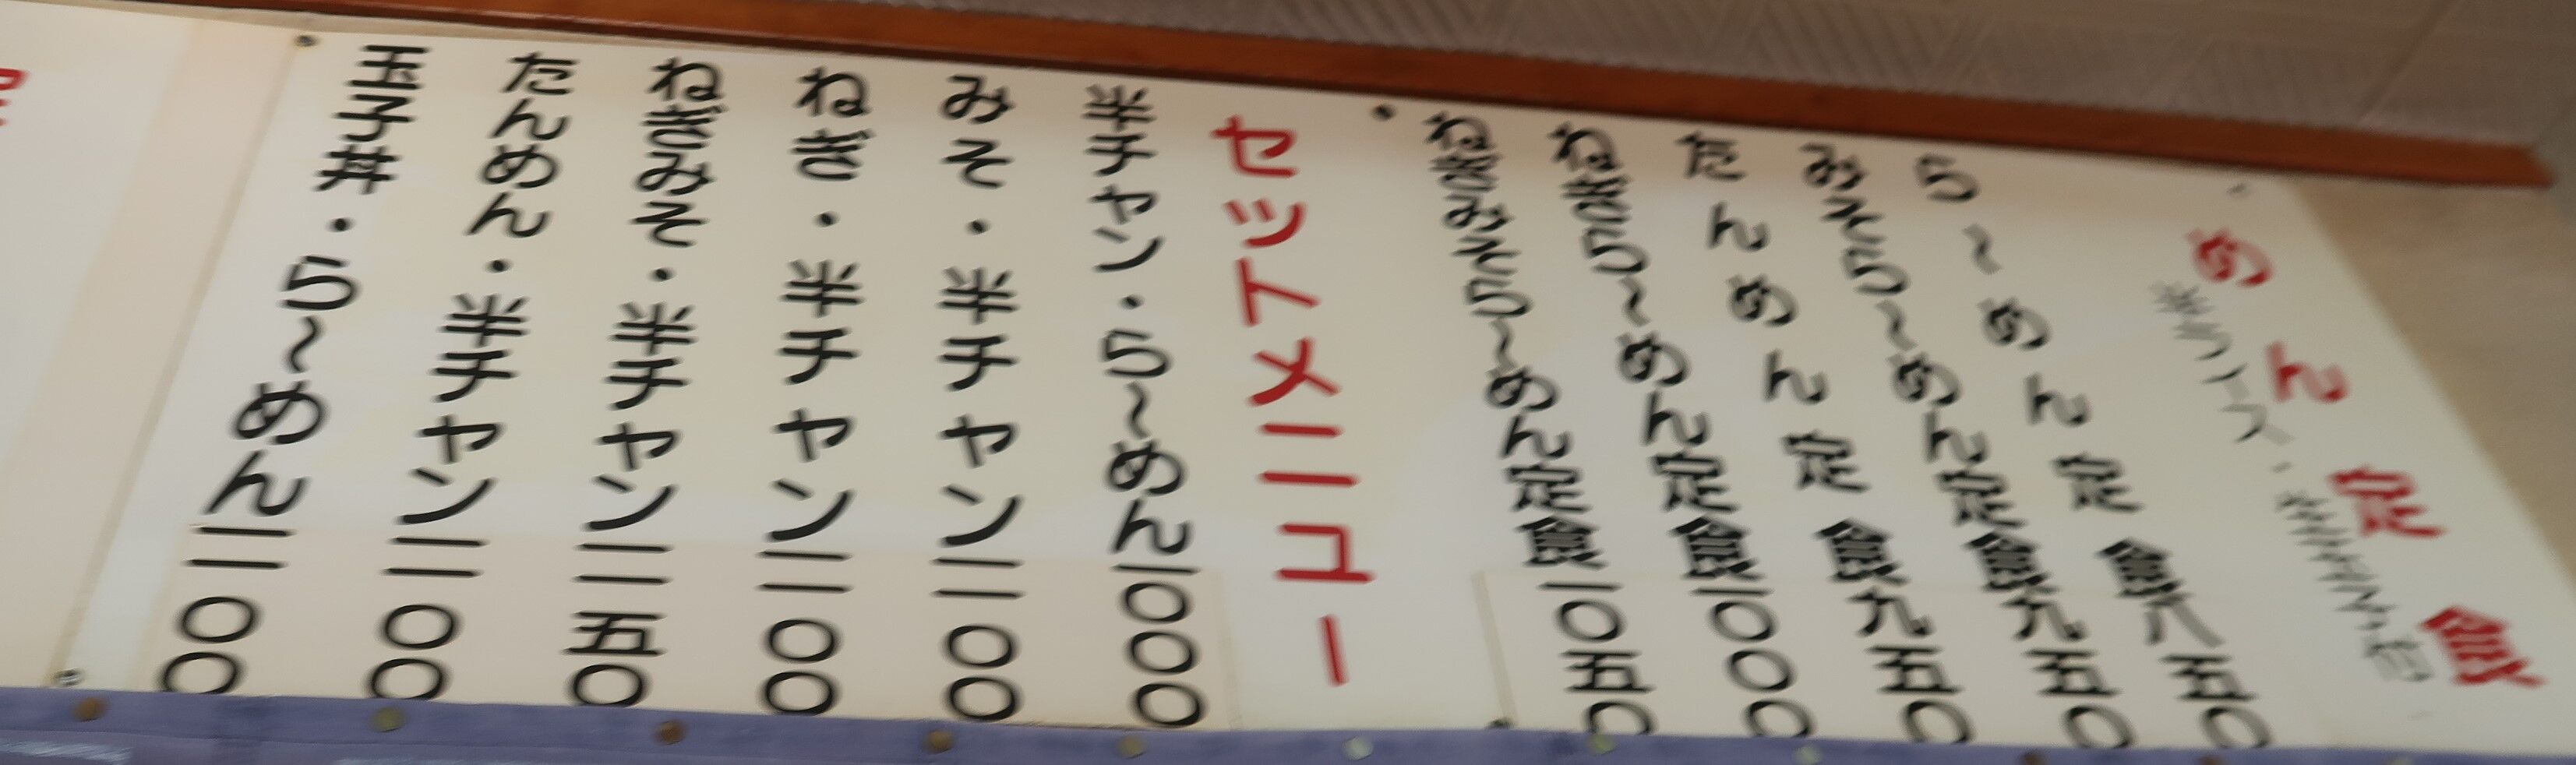 めん定食
半ライス・
ら～めん定食八五〇
みそら～めん定食九五〇
たんめん定食九五〇
ねぎら～めん定食一〇〇〇
ねぎみそら～めん定食一〇五〇
セットメニュー
半チャン・ら～めん一〇〇〇
みそ・半チャン一一〇〇
ねぎ・半チャン一一〇〇
ねぎみそ・半チャン一一五〇
たんめん・半チャン一一〇〇
玉子丼・ら～めん一一〇〇